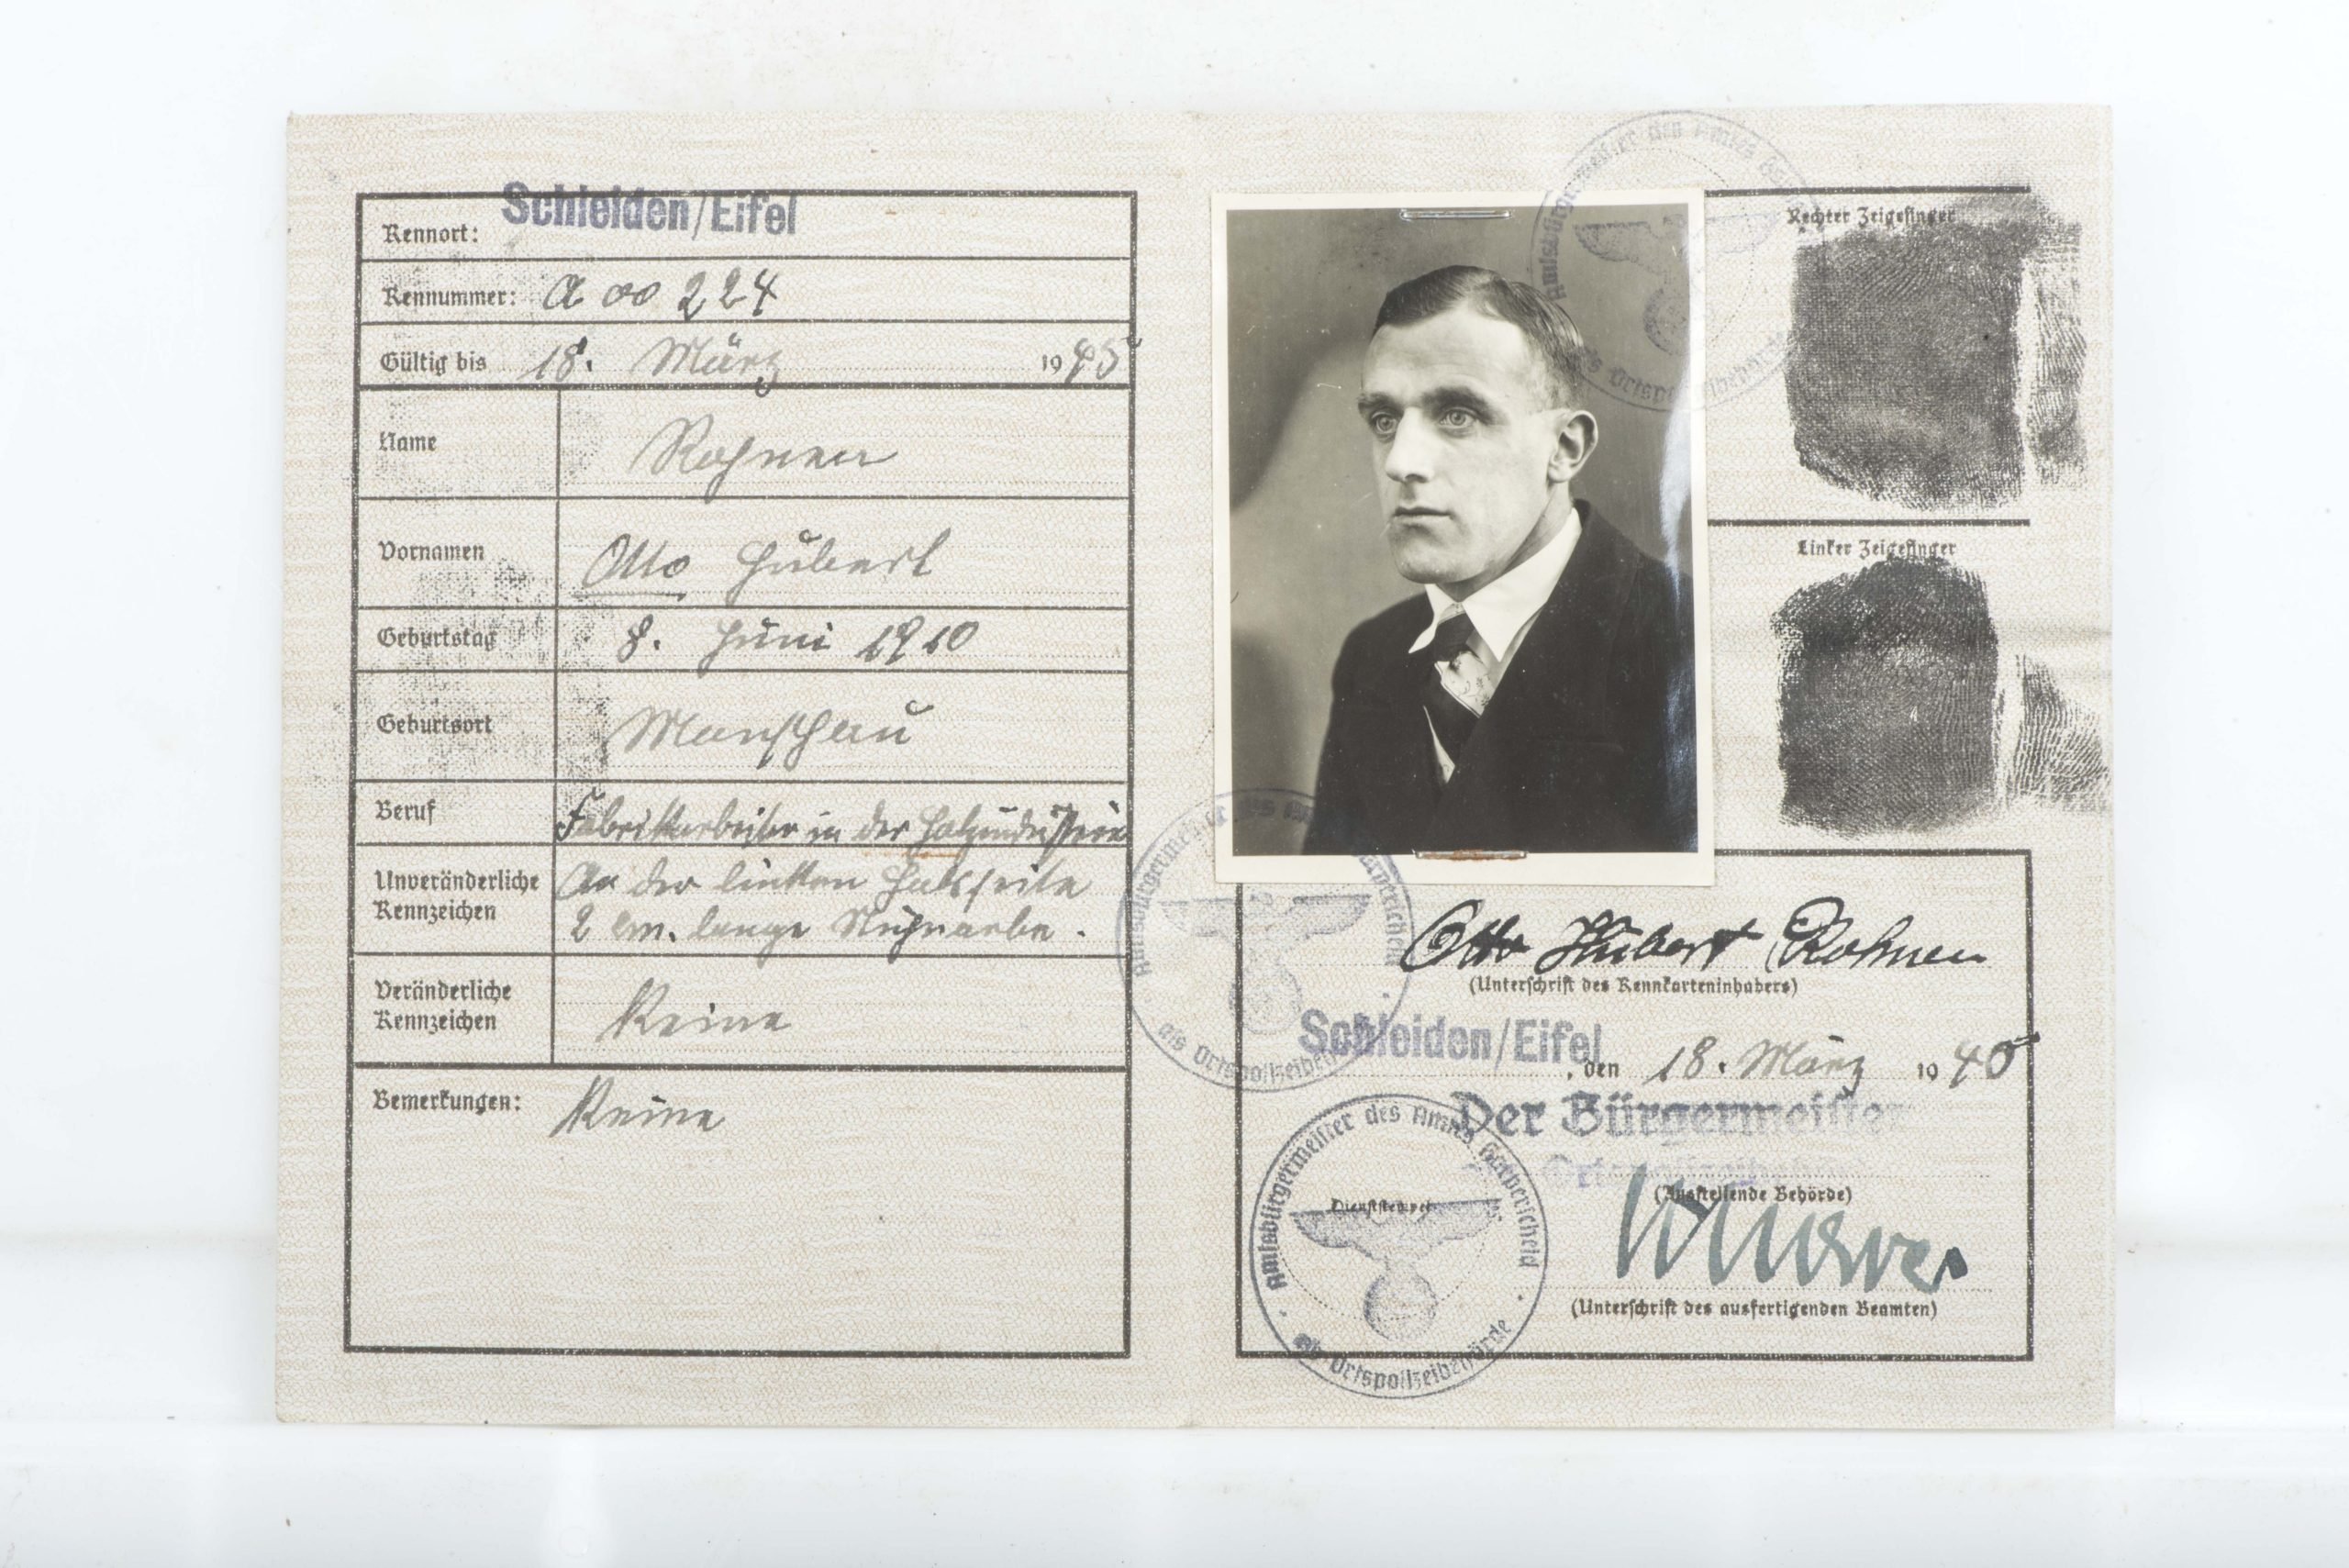 Kennort: Schleiden/Eifel
Kennummer: A 00 224
Gültig bis 18. März 1945
Name Rohnen
Vornamen Otto Hubert
Geburtstag 8. Juni 1910
Geburtsort Monschau
Beruf Fabrikarbeiter in der Holzindustrie
Unveränderliche Kennzeichen An der linken Halsseite
2 cm. lange Narbe.
Veränderliche Kennzeichen Keine
Bemerkungen: Keine
Rechter Zeigefinger
Linker Zeigefinger
Otto Hubert Rohnen
(Unterschrift des Kennkarteninhabers)
Schleiden/Eifel, den 18. März 1940
Der Bürgermeister
Ortspolizeibehörde
(Ausstellende Behörde)
Dienststempel
(Unterschrift des ausfertigenden Beamten)
Amtsbürgermeister des Amtes Harperscheid
als Ortspolizeibehörde